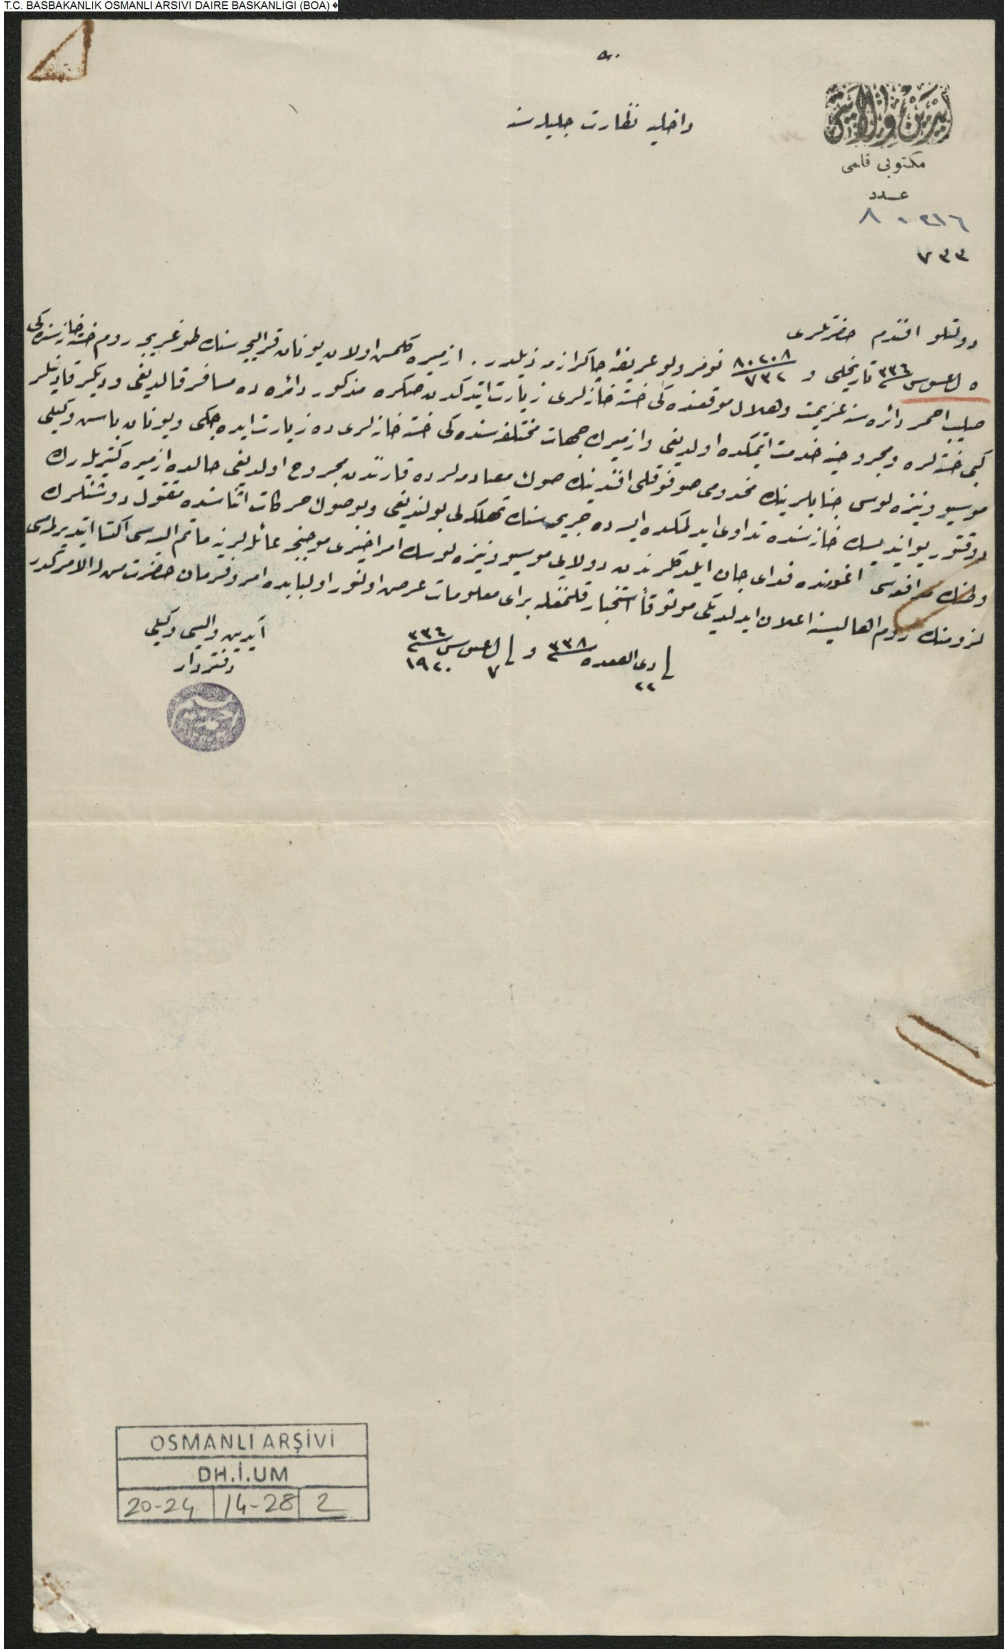 T.C. BASBAKANLIK OSMANLI ARSIVI DAIRE BASKANLIGI (BOA)
آیدین ولایتی
مكتوبی قلمی
عدد
داخلیه نظارت جلیله‌سنه
٧٣٣
دولتلو افندم حضرتلری
تاریخلی و ٨٠٢٠٨ / ٧٣٢ نومرولو عریضهٔ چاكرانه‌مه ذیلدر . ازمیره كلمش اولان یونان قرالیچه‌سنك طوغریجه روم خسته‌خانه‌سنده‌كی
صلیب احمر دائره‌سنه عزیمت و هلال موقعنده‌كی خسته‌خانه‌لری زیارت ایتدكدن صكره مذكور دائره ده مسافر قالدیغی و دیكر قادینلر
كبی خسته‌لره و مجروحینه خدمت ایتمكده اولدیغی و ازمیرك جهات مختلفه‌سنده كی خسته‌خانه‌لری ده زیارت ایده‌جكی و یونان باش وكیلی
موسیو ونیزه‌لوس جنابلرینك مخدومی صوفوقلی افندینك صوك مصادمه‌لرده قارندن مجروح اولدیغی حالده ازمیره كتیریله‌رك
خانه‌سنده تداوی ایدلمكده ایسه ده جریحه‌سنك تهلكه‌لی بولندیغی و بو صوك حركات اثناسنده مقتول دوشنلرك
وطنك اوغورنده فدای جان ایلدكلرندن دولایی موسیو ونیزه‌لوسك امر اخیری موجبنجه عائله‌لرینه ماتم البسه‌سی اكتسا ایتدیرلمسی
لزومنك روم اهالیسنه اعلان ایدلدیكی موثوقاً استخبار قلنمغله برای معلومات عرض اولنور اولبابده امر و فرمان حضرت من له الامركدر
فی ٢٢ ذی القعده ٣٣٨ و فی ٧ اغستوس ٣٣٦
١٩٢٠
آیدین والیسی وكیلی
دفتردار
OSMANLI ARŞİVİ
DH.İ.UM
20-24 14-28 2